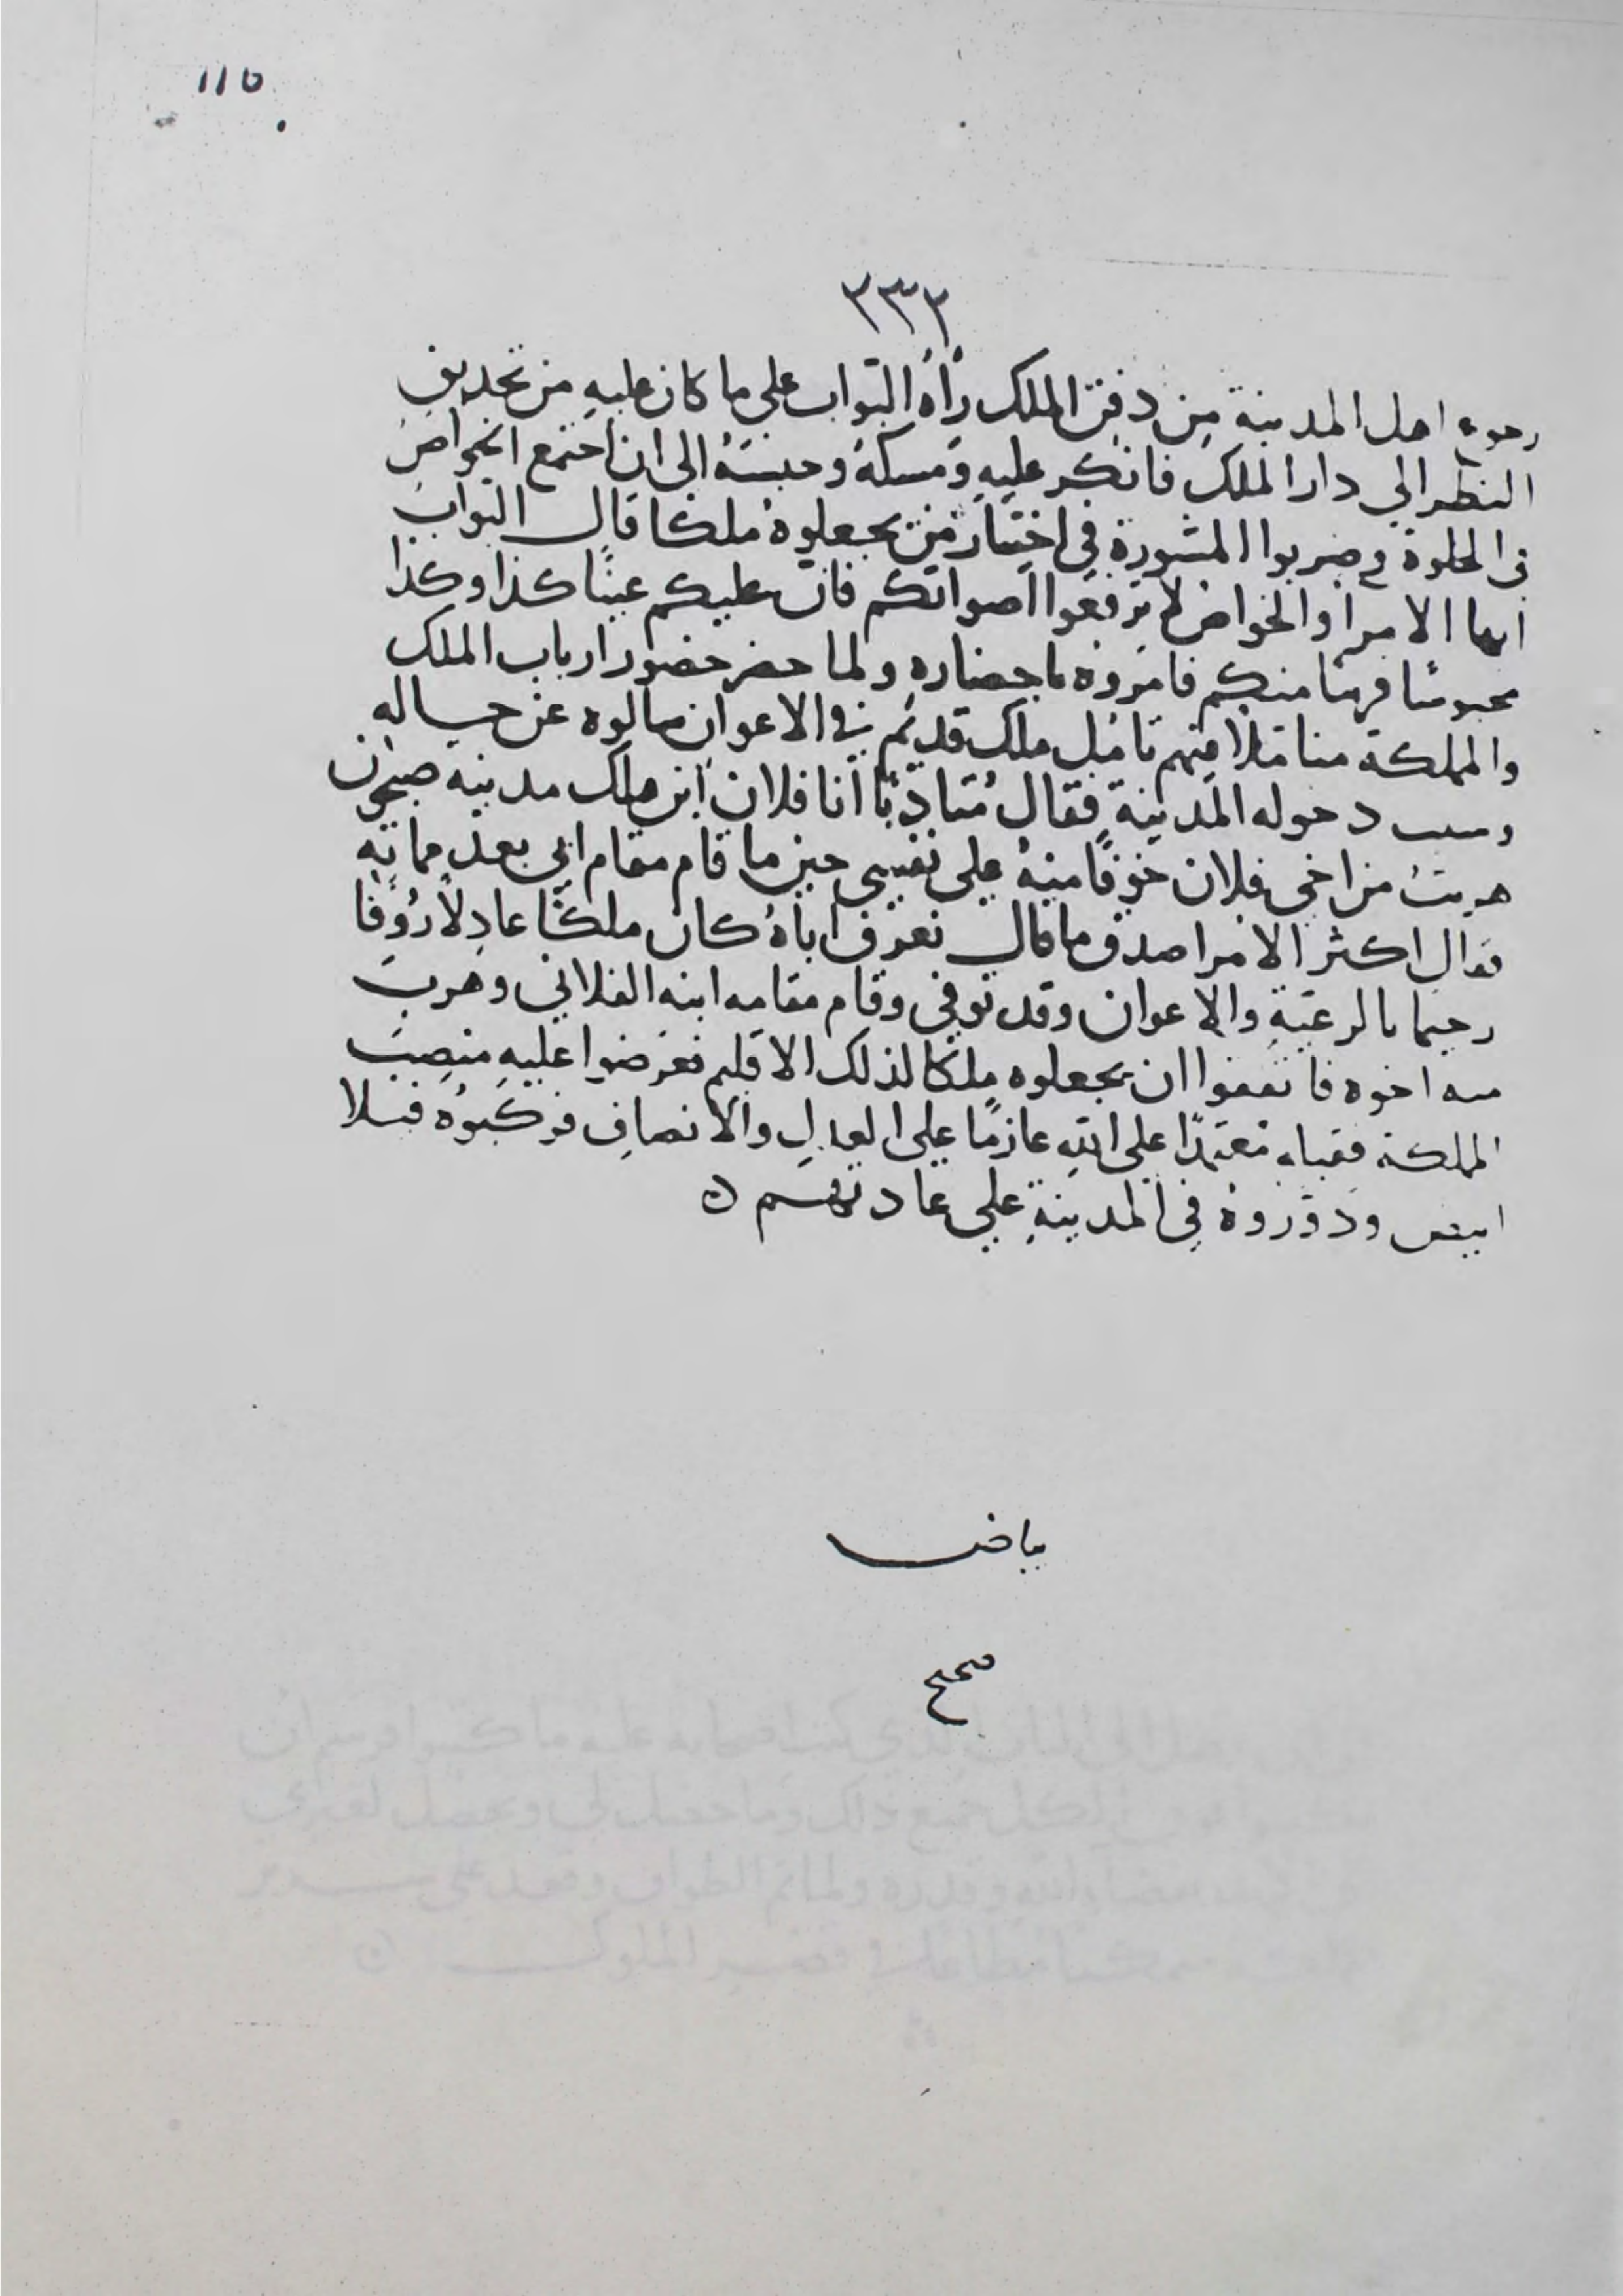 115
٣٣٢
رجوع اهل المدينة من دفن الملك رأهُ البوّاب على ما كان عليهِ من تحديق
النظر الي دار الملك فانكر عليهِ ومسكهُ وحبسهُ الى ان اجتمع الخواص
في الخلوة وضربوا المشورة في اختيار من يجعلوهُ ملكا قال البواب
ايها الامرا والخواص لا ترفعوا اصواتكم فان عليكم عينًا كذا وكذا
محبوسًا قريبًا منكم فامروه باحضاره ولما حضر حضور ارباب الملك
والمملكة متاملا فيهم تامّل ملك قديم في الاعوان سالوه عن حاله
وسبب دخوله المدينة فقال مُتادبًا انا فلان ابن ملك مدينة صيحون
هربتُ من اخي فلان خوفًا منهُ على نفسي حين ما قام مقام ابي بعد مماته
فقال اكثر الامرا صدق ما قال نعرف اباهُ كان ملكًا عادلاً رؤفا
رحيما بالرعيةِ والاعوان وقد توفي وقام مقامه ابنه الفلاني وهرب
منه اخوه فاتفقوا ان يجعلوه ملكا لذلك الاقليم فعرضوا عليهِ منصب
المملكة فقبله معتمدًا على اللهِ عازمًا على العدلِ والانصافِ فركبوُه فيلا
ابيض ودوّروهُ في المدينةِ علي عادتهم ه
بياض
صحيح